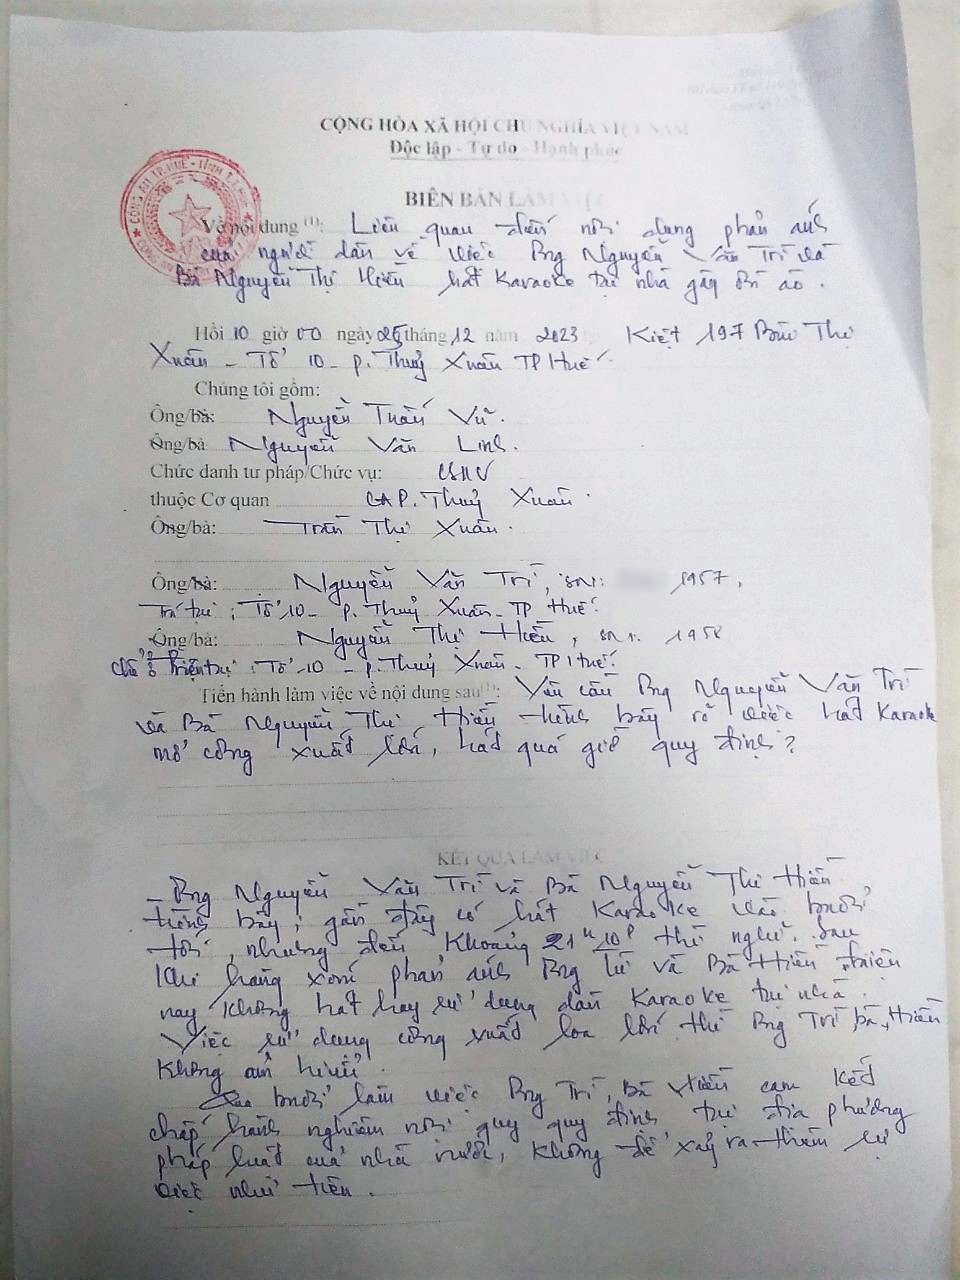 CỘNG HÒA XÃ HỘI CHỦ NGHĨA VIỆT NAM
Độc lập - Tự do - Hạnh phúc
BIÊN BẢN LÀM VIỆC
Về nội dung (1): Liên quan đến nội dung phản ánh
của người dân về việc Ông Nguyễn Văn Trí và
Bà Nguyễn Thị Hiền hát Karaoke tại nhà gây ồn ào.
Hồi 10 giờ 00 ngày 25 tháng 12 năm 2023 Kiệt 197 Bùi Thị
Xuân - Tổ 10 - p. Thuỷ Xuân TP Huế.
Chúng tôi gồm:
Ông/bà: Nguyễn Tuấn Vũ.
Ông/bà Nguyễn Văn Linh.
Chức danh tư pháp/Chức vụ: CSKV
thuộc Cơ quan CAP. Thuỷ Xuân.
Ông/bà: Trần Thị Xuân.
Ông/bà: Nguyễn Văn Trí, sn: 1957,
Trú tại: Tổ 10 - p. Thuỷ Xuân - TP Huế.
Ông/bà: Nguyễn Thị Hiền, sn: 1958
Chỗ ở hiện tại: Tổ 10 - p. Thuỷ Xuân - TP Huế.
Tiến hành làm việc về nội dung sau (1): Yêu cầu Ông Nguyễn Văn Trí
và Bà Nguyễn Thị Hiền trình bày rõ việc hát Karaoke
mở công xuất lớn, hát quá giờ quy định?
KẾT QUẢ LÀM VIỆC
- Ông Nguyễn Văn Trí và Bà Nguyễn Thị Hiền
trình bày: gần đây có hát Karaoke vào buổi
tối, nhưng đến khoảng 21h10p thì nghỉ. Sau
khi hàng xóm phản ánh Ông Trí và Bà Hiền
nay không hát hay sử dụng dàn Karaoke tại nhà.
Việc sử dụng công xuất loa lớn thì Ông Trí, bà Hiền
không am hiểu.
Qua buổi làm việc Ông Trí, Bà Hiền cam kết
chấp hành nghiêm nội quy quy định tại địa phương
pháp luật của nhà nước, không để xảy ra thêm sự
việc như trên.